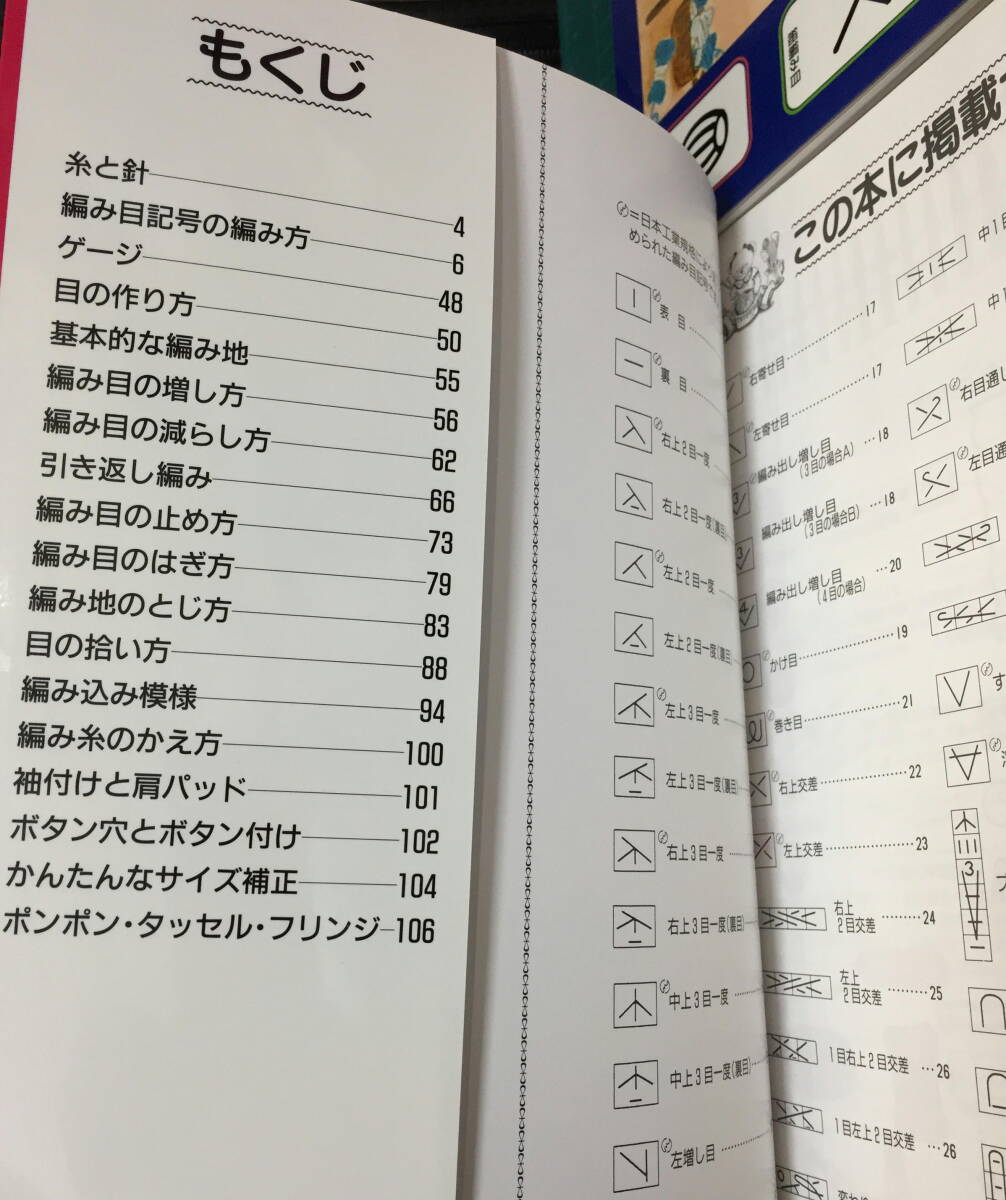 もくじ
糸と針 4
編み目記号の編み方 6
ゲージ 48
目の作り方 50
基本的な編み地 55
編み目の増し方 56
編み目の減らし方 62
引き返し編み 66
編み目の止め方 73
編み目のはぎ方 79
編み地のとじ方 83
目の拾い方 88
編み込み模様 94
編み糸のかえ方 100
袖付けと肩パッド 101
ボタン穴とボタン付け 102
かんたんなサイズ補正 104
ポンポン・タッセル・フリンジ 106
=日本工業規格により
められた編み目記号
表目
裏目
右上2目一度
右上2目一度(裏目)
左上2目一度
左上2目一度(裏目)
左上3目一度
左上3目一度(裏目)
右上3目一度
右上3目一度(裏目)
中上3目一度
中上3目一度(裏目)
左増し目
この本に掲載
右寄せ目 17
左寄せ目 17
編み出し増し目 18
(3目の場合A)
編み出し増し目 18
(3目の場合B)
編み出し増し目 20
(4目の場合)
かけ目 19
巻き目 21
右上交差 22
左上交差 23
右上
2目交差 24
左上
2目交差 25
1目右上2目交差 26
1目左上2目交差 26
中1目
中1
右目通し
左目通
す